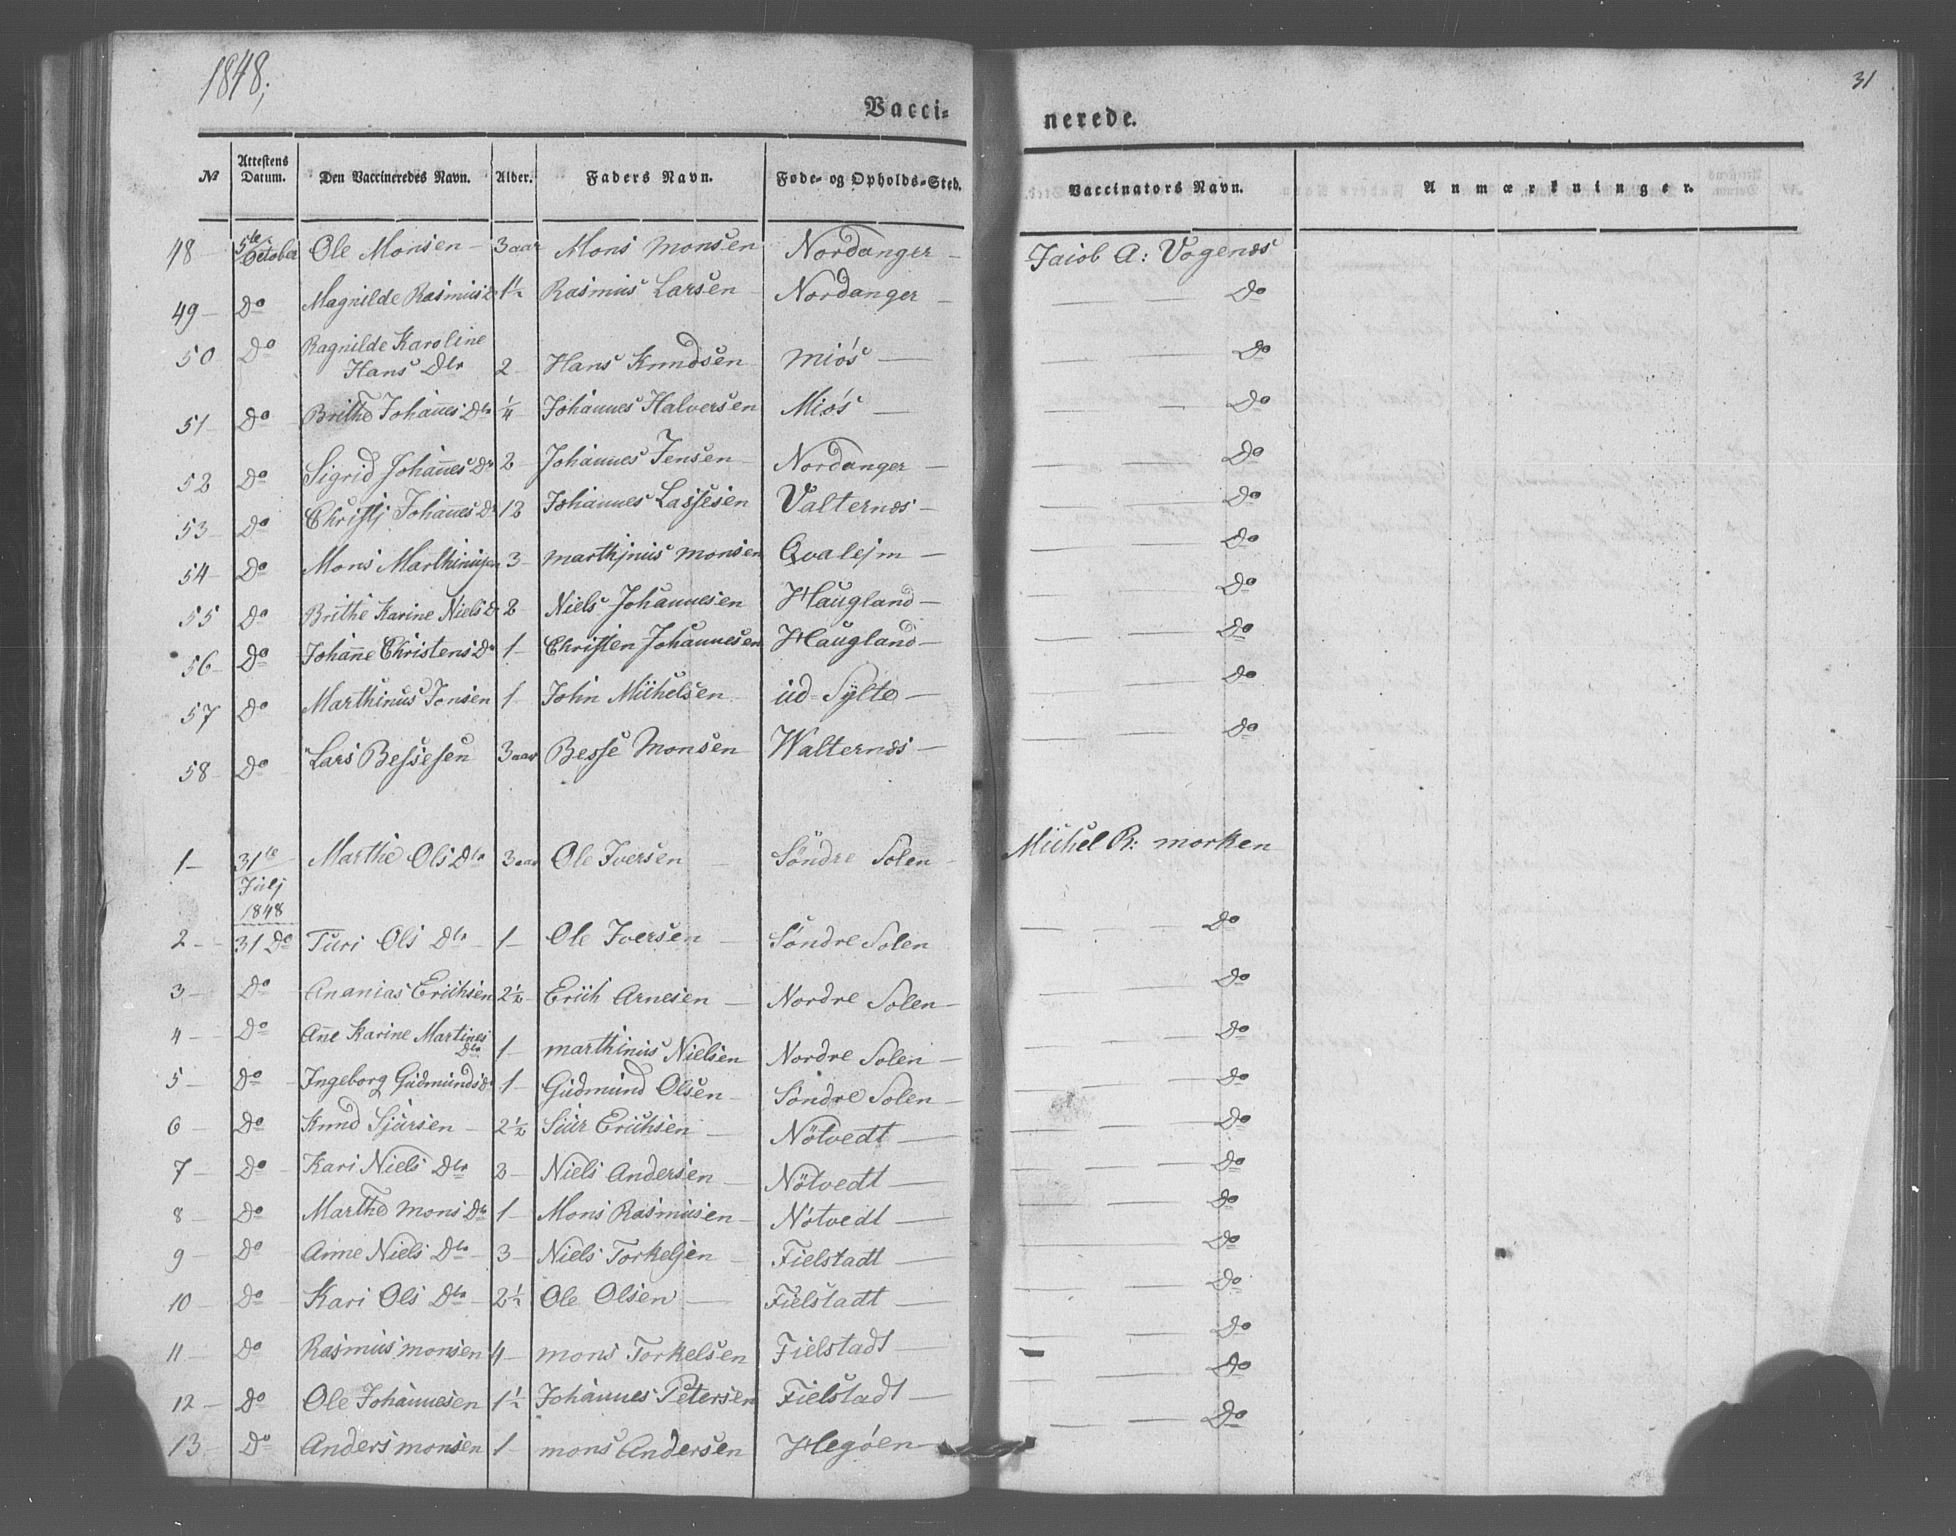 1848;
31
Vacci- nerede.
№ Attestens Datum. Den Vaccineredes Navn. Alder. Faders Navn. Føde- og Opholds-Sted. Vaccinators Navn. Anmærkninger.
48 5te October Ole Monsen 3 aar Mons Monsen Nordanger Jacob A: Vogenæs
49 Do Magnilde Rasmus D. 1½ Rasmus Larsen Nordanger Do
50 Do Ragnilde Karoline
Hans Dtr 2 Hans Knudsen Miös Do
51 Do Brithe Johanes Dtr ¼ Johannes Halversen Miös Do
52 Do Sigrid Johannes Dr 2 Johannes Jensen Nordanger Do
53 Do Christj Johanes Dr 12 Johannes Lassesen Valternæs Do
54 Do Mons Marthinusen 3 Marthjnus Monsen Qvalejm Do
55 Do Brithe Karine Niels D 2 Niels Johannesen Haugland Do
56 Do Johanne Christens Dr 1 Christen Johannesen Haugland Do
57 Do Marthinus Jonsen 1 John Michelsen ud-Sylte Do
58 Do Lars Bessesen 3 aar Besse Monsen Walternæs Do
1 31te Julj 1848 Marthe Ols Dtr 3 aar Ole Iversen Söndre Solen Michel R: Morken
2 31 Do Turi Ols Dtr 1 Ole Iversen Söndre Solen Do
3 Do Ananias Erichsen 2½ Erich Arnesen Nordre Solen Do
4 Do Anne Karine Martines
Dtr 1 Marthinus Nielsen Nordre Solen Do
5 Do Ingeborg Gudmunds D 1 Gudmund Olsen Söndre Solen Do
6 Do Knud Sjursen 2½ Siur Erichsen Nötvedt Do
7 Do Kari Niels Dtr 2 Niels Andersen Nötvedt Do
8 Do Marthe Mons Dtr 1 Mons Rasmusen Nötvedt Do
9 Do Anne Niels Dtr 3 Niels Torkelsen Fielstadt Do
10 Do Kari Ols Dtr 2½ Ole Olsen Fielstadt Do
11 Do Rasmus Monsen 4 Mons Torkelsen Fielstadt Do
12 Do Ole Johannesen 1½ Johannes Petersen Fielstadt Do
13 Do Anders Monsen 1 Mons Andersen Hegöen Do